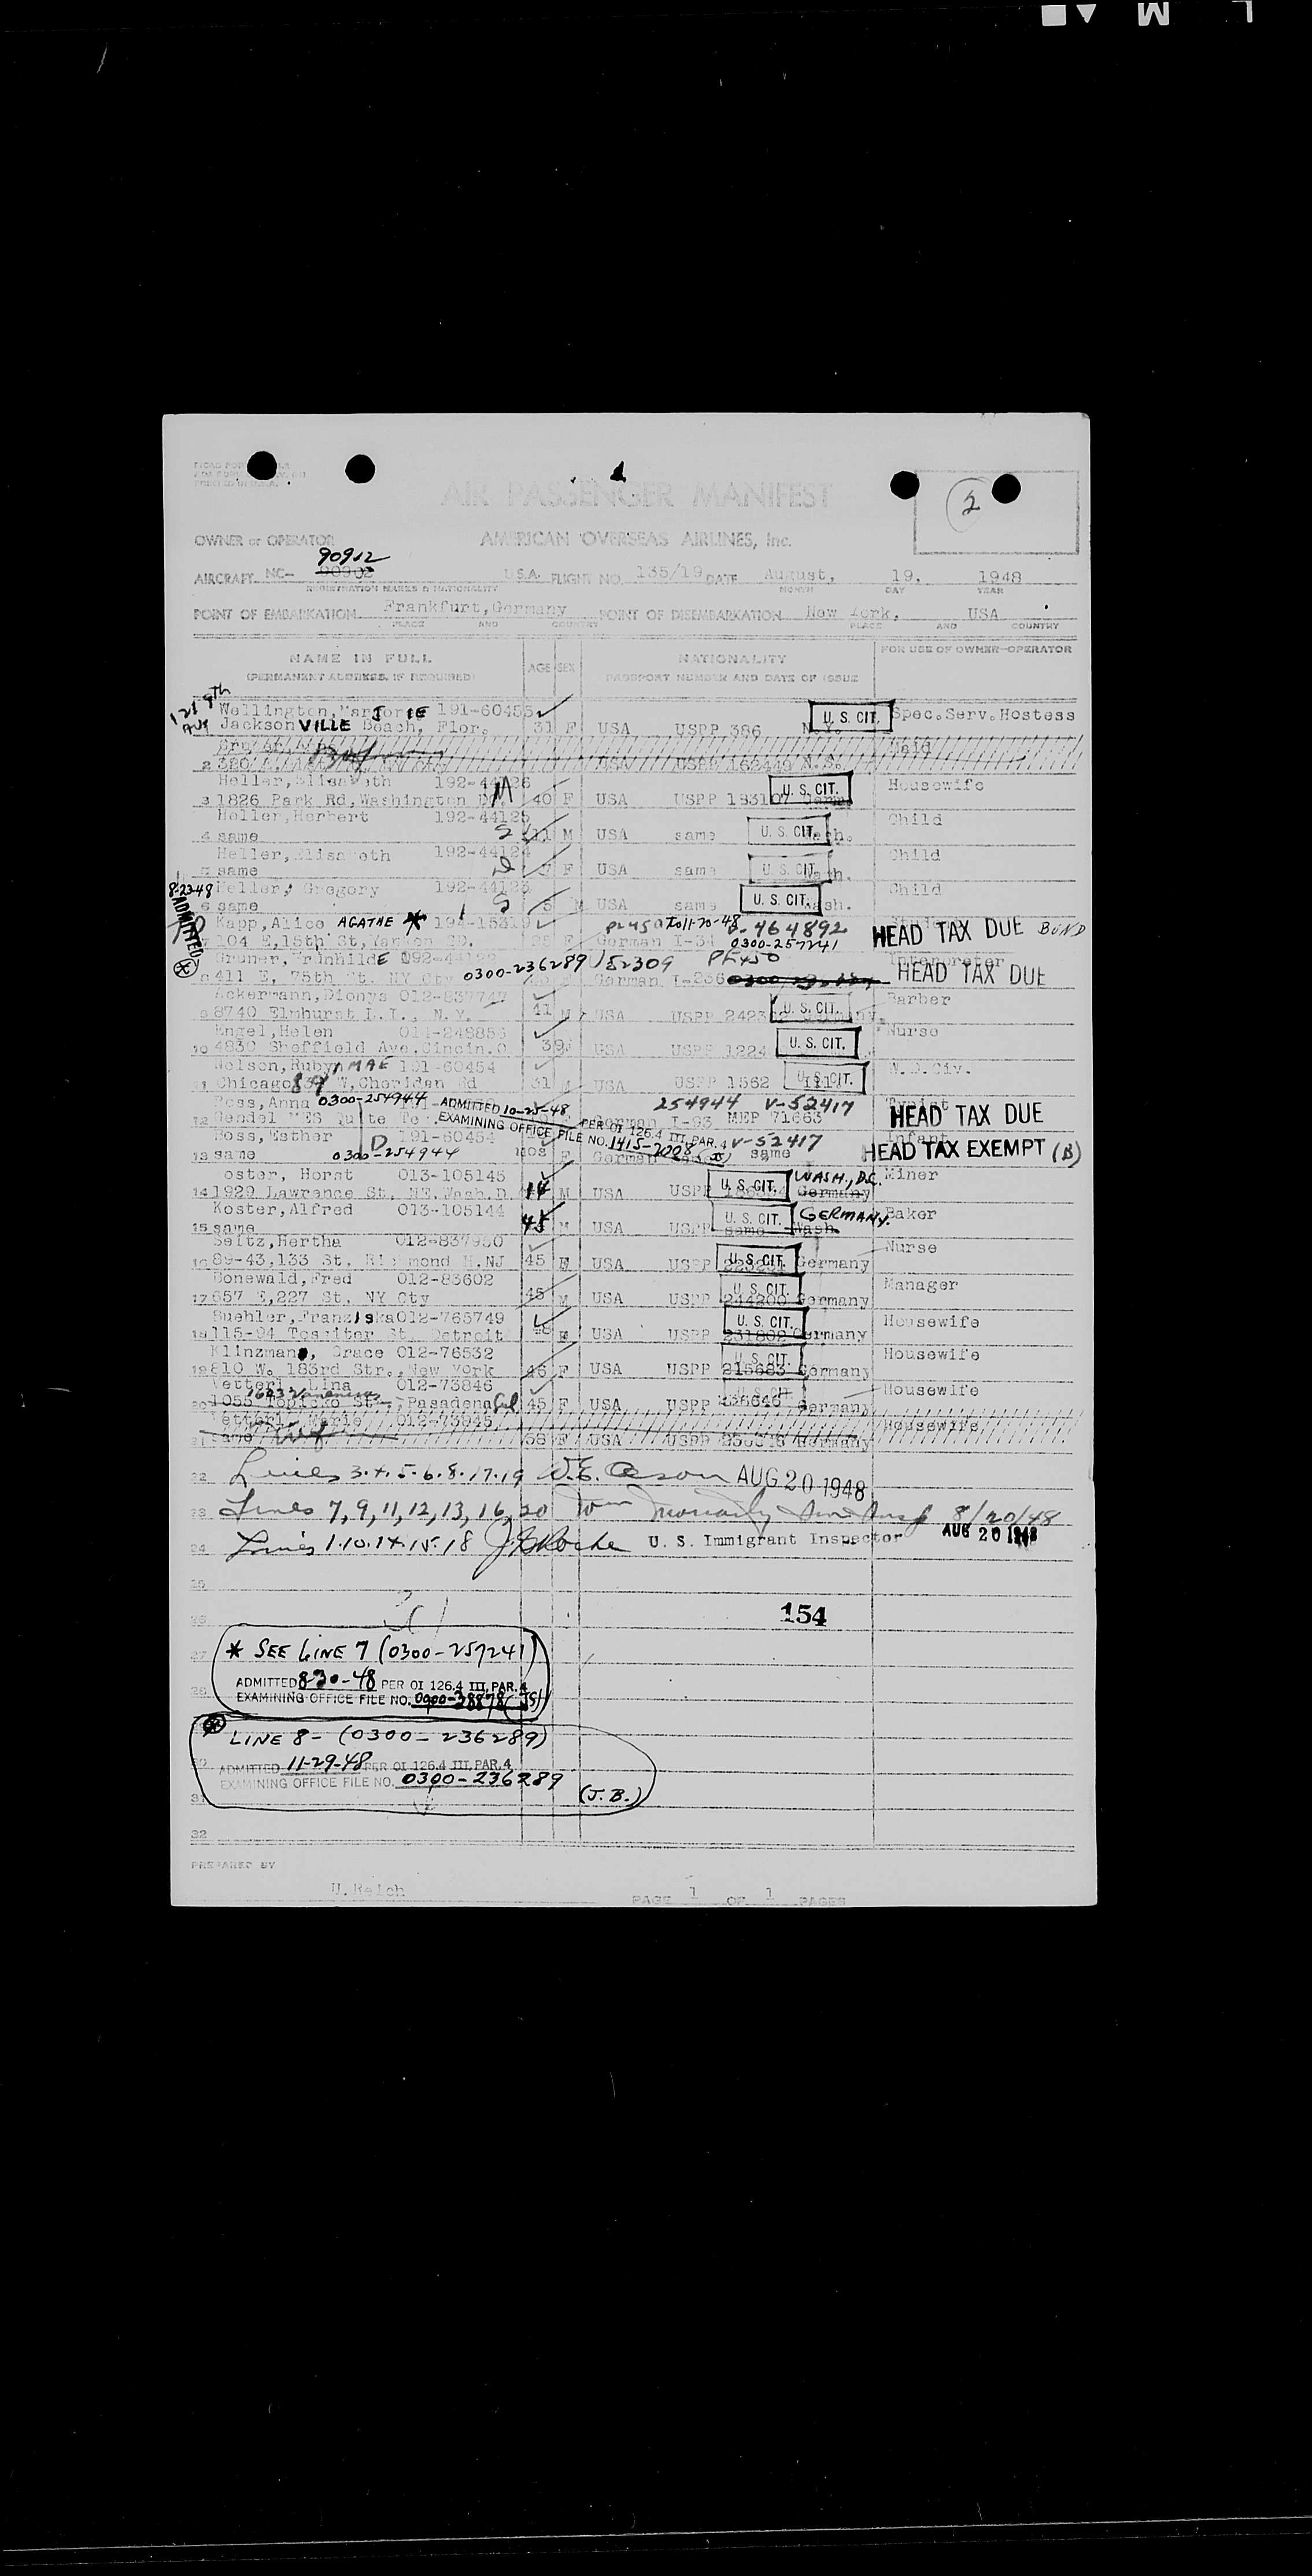 AIR PASSENGER MANIFEST
2
OWNER or OPERATOR AMERICAN OVERSEAS AIRLINES, Inc.
90912
AIRCRAFT NC- 90902 U.S.A. FLIGHT NO. 135/19 DATE August, 19. 1948
REGISTRATION MARKS & NATIONALITY MONTH DAY YEAR
POINT OF EMBARKATION Frankfurt,Germany POINT OF DISEMBARKATION New York, USA
PLACE AND COUNTRY PLACE AND COUNTRY
NAME IN FULL AGE SEX NATIONALITY FOR USE OF OWNER-OPERATOR
(PERMANENT ADDRESS, IF REQUIRED) PASSPORT NUMBER AND DATE OF ISSUE
Wellington,MarJorIE 191-60453 U. S. CIT. Spec.Serv.Hostess
JacksonVILLE Beach, Flor. 31 F USA USPP 386 N.Y.
Maid
2 USA USPP 162449
Heller,Elisabeth 192-44126 M U. S. CIT. Housewife
3 1826 Park Rd,Washington 40 F USA USPP 183107
Heller,Herbert 192-44125 Child
4 same S 11 M USA same U. S. CIT.
Heller,Elisabeth 192-44124 Child
same 7 F USA same U. S. CIT.
8-23-48 Heller, Gregory 192-44123 Child
6 same S M USA same U. S. CIT.
ADMITTED
Kapp,Alice AGATHE * 194-15319 to 11-20-48 V-464892 HEAD TAX DUE BOND
104 E,15th St, F German I-34 0300-257241
Gruner,FrunhildE 0300-236289 152309 Interpreter
411 E, 75th St. NY Cty German HEAD TAX DUE
Ackermann,Dionys 012-837747 Barber
8740 Elmhurst L.I., N.Y. 41 M USA USPP 2423 U. S. CIT.
Engel,Helen 014-248853 Nurse
10 4830 Sheffield Ave.Cincin.O 39 USA USPP 1224 U. S. CIT.
Nelson,Ruby MAE 191-60454 W.D.Civ.
11 Chicago W,Cheridan Rd 31 USA USPP 1562 U. S. CIT.
Ross,Anna 0300-254944 ADMITTED 10-25-48 PER OI 126.4 III, PAR. 4 254944 V-52417 Typist
12 EXAMINING OFFICE FILE NO. 1415-2008 German I-93 MEP 71663 HEAD TAX DUE
Ross,Esther D 191-60454 V-52417 Infant
13 same 0300-254944 F German same HEAD TAX EXEMPT (B)
Horst 013-105145 U. S. CIT. WASH., D.C. Miner
14 1929 Lawrence St. NE.Wash.D. 14 M USA USPP Germany
Koster,Alfred 013-105144 U. S. CIT. GERMANY. Baker
15 same 45 M USA USPP same Wash.
Seitz,Hertha 012-837950 Nurse
16 89-43,133 St. Richmond H.NJ 45 USA USPP U. S. CIT. Germany
Bonewald,Fred 012-83602 U. S. CIT. Manager
17 657 E,227 St. NY Cty 45 M USA USPP 244200 Germany
Buehler,Franziska 012-765749 U. S. CIT. Housewife
115-94 St. Detroit 48 USA USPP 231802 Germany
Klinzman, Grace 012-76532 U. S. CIT. Housewife
810 W. 183rd Str.,New York 46 F USA USPP 215683 Germany
Vetterl, Lina 012-73846 Housewife
20 1055 St., Pasadena Cal 45 F USA USPP Germany
Vetterl, Marie 012-73945 Housewife
21 same 58 F USA USPP Germany
22 Lines 3.4.5.6.8.17.19 AUG 20 1948
23 Lines 7, 9, 11, 12, 13, 16, 20 8/20/48
24 Lines 1.10.14.15.18 U. S. Immigrant Inspector AUG 20 1948
25
26 154
27 * SEE LINE 7 (0300-257241)
ADMITTED 8-30-48 PER OI 126.4 III, PAR. 4
EXAMINING OFFICE FILE NO.
LINE 8- (0300-236289)
ADMITTED 11-29-48 PER OI 126.4 III, PAR. 4
EXAMINING OFFICE FILE NO. 0300-236289 (J.B.)
31
32
PREPARED BY
U.Reich PAGE 1 OF 1 PAGES